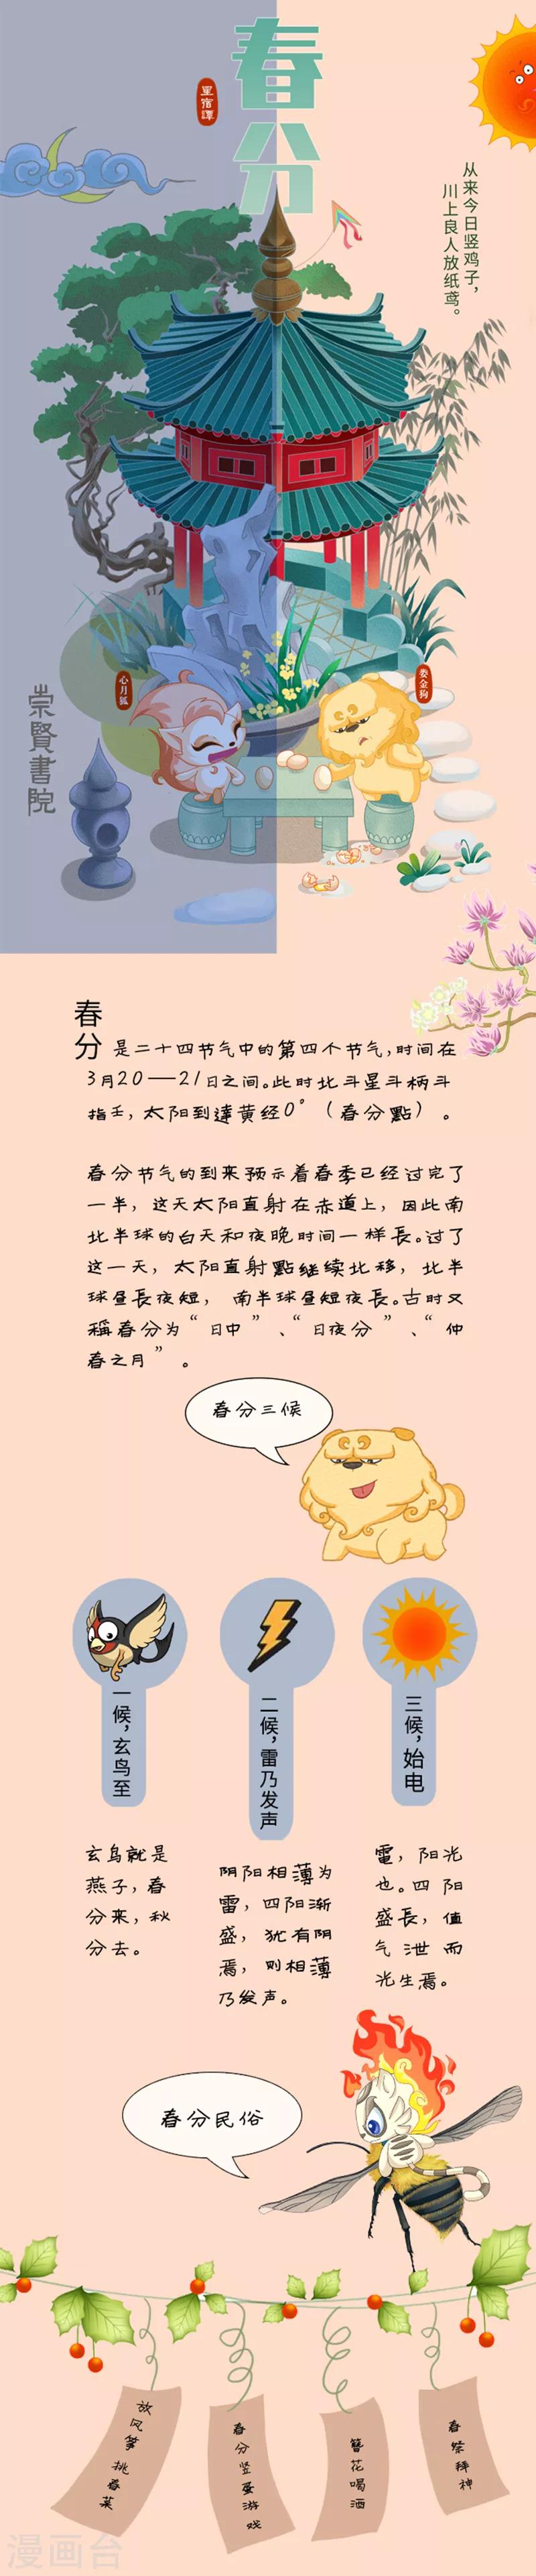 春分
星宿譚
从来今日竖鸡子，
川上良人放纸鸢。
心月狐
娄金狗
崇賢書院
春分是二十四节气中的第四个节气，时间在
3月20——21日之间。此时北斗星斗柄斗
指壬，太阳到達黄经0°（春分點）。
春分节气的到来预示着春季已经过完了
一半，这天太阳直射在赤道上，因此南
北半球的白天和夜晚时间一样長。过了
这一天，太阳直射點继续北移，北半
球昼長夜短，南半球昼短夜長。古时又
稱春分为“日中”、“日夜分”、“仲
春之月”。
春分三候
一候，玄鸟至
二候，雷乃发声
三候，始电
玄鸟就是
燕子，春
分来，秋
分去。
阴阳相薄为
雷，四阳渐
盛，犹有阴
焉，则相薄
乃发声。
電，阳光
也。四阳
盛長，值
气泄而
光生焉。
春分民俗
放风筝 挑春菜
春分竖蛋游戏
簪花喝酒
春祭拜神
漫画台